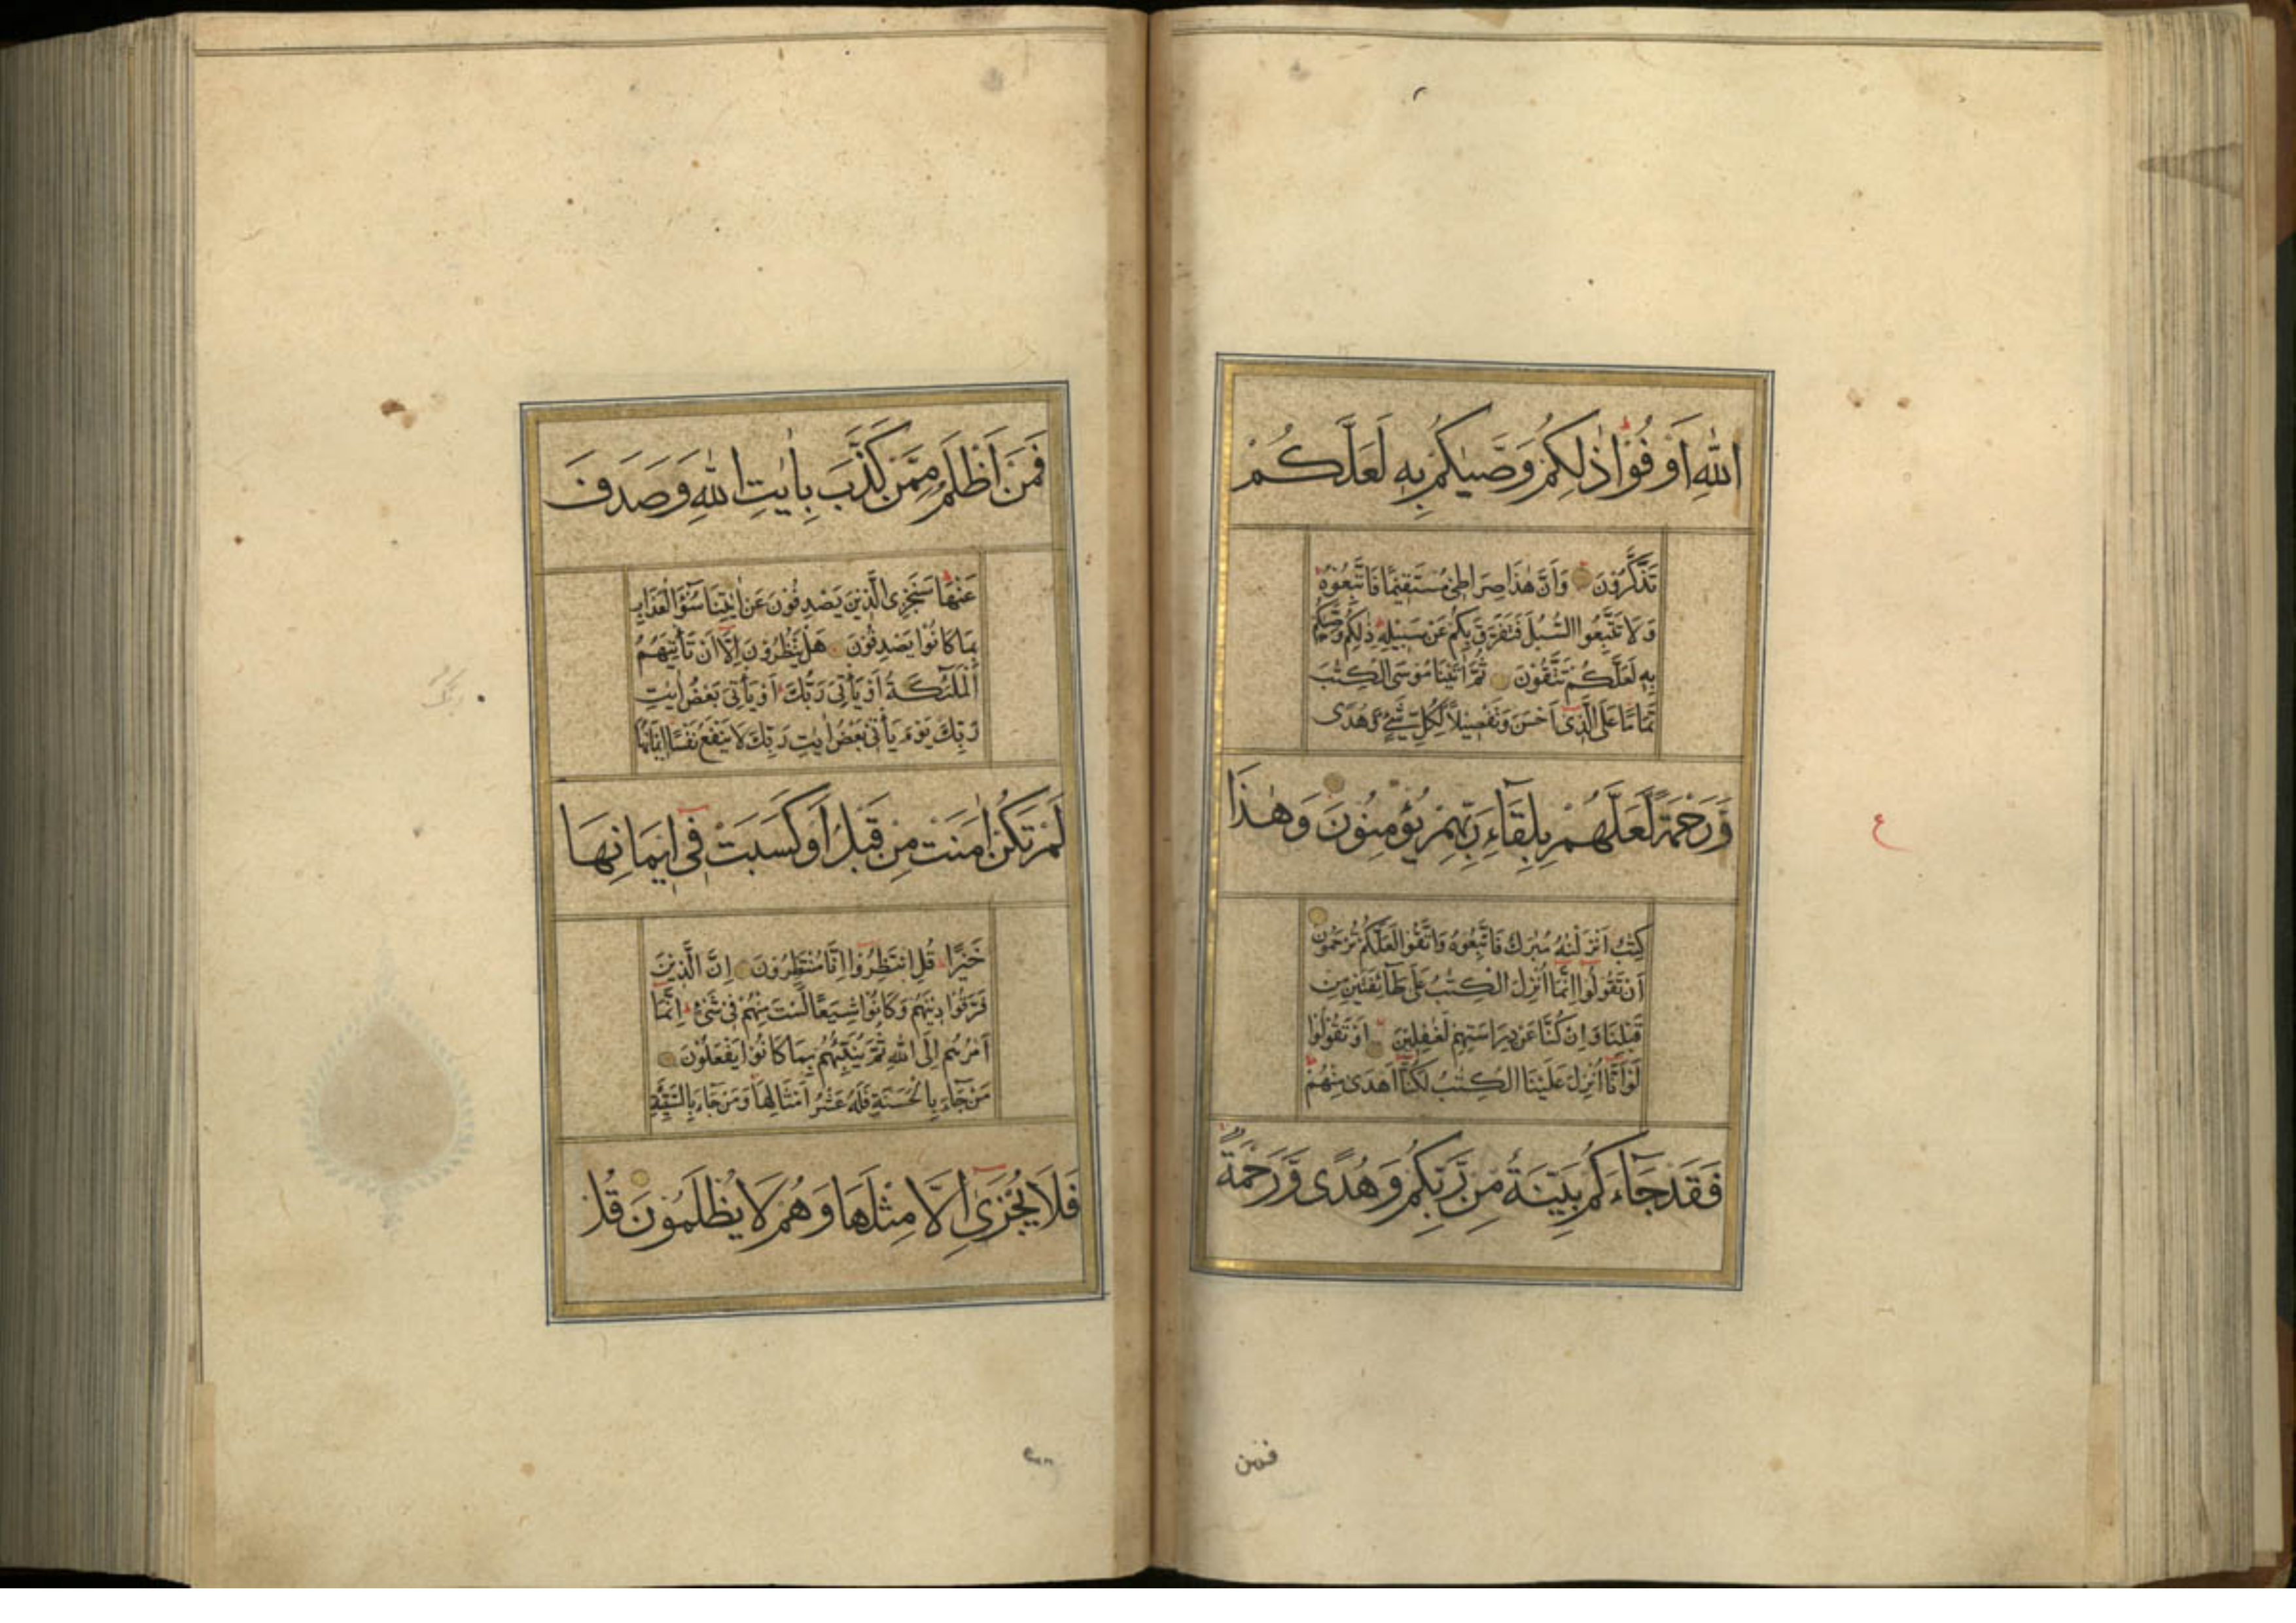 اللّٰهِ اَوْفُوْا ذٰلِكُمْ وَصّٰىكُمْ بِهٖ لَعَلَّكُمْ
تَذَكَّرُوْنَ وَاَنَّ هٰذَا صِرَاطِىْ مُسْتَقِيْمًا فَاتَّبِعُوْهُ
وَلَا تَتَّبِعُوا السُّبُلَ فَتَفَرَّقَ بِكُمْ عَنْ سَبِيْلِهٖ ذٰلِكُمْ وَصّٰىكُمْ
بِهٖ لَعَلَّكُمْ تَتَّقُوْنَ ثُمَّ اٰتَيْنَا مُوْسَى الْكِتٰبَ
تَمَامًا عَلَى الَّذِىْ اَحْسَنَ وَتَفْصِيْلًا لِّكُلِّ شَىْءٍ وَّهُدًى
وَّرَحْمَةً لَّعَلَّهُمْ بِلِقَآءِ رَبِّهِمْ يُؤْمِنُوْنَ وَهٰذَا
كِتٰبٌ اَنْزَلْنٰهُ مُبٰرَكٌ فَاتَّبِعُوْهُ وَاتَّقُوْا لَعَلَّكُمْ تُرْحَمُوْنَ
اَنْ تَقُوْلُوْا اِنَّمَا اُنْزِلَ الْكِتٰبُ عَلٰى طَآئِفَتَيْنِ مِنْ
قَبْلِنَا وَاِنْ كُنَّا عَنْ دِرَاسَتِهِمْ لَغٰفِلِيْنَ اَوْ تَقُوْلُوْا
لَوْ اَنَّا اُنْزِلَ عَلَيْنَا الْكِتٰبُ لَكُنَّا اَهْدٰى مِنْهُمْ
فَقَدْ جَآءَكُمْ بَيِّنَةٌ مِّنْ رَّبِّكُمْ وَهُدًى وَّرَحْمَةٌ
ع
فمن
فَمَنْ اَظْلَمُ مِمَّنْ كَذَّبَ بِاٰيٰتِ اللّٰهِ وَصَدَفَ
عَنْهَا سَنَجْزِى الَّذِيْنَ يَصْدِفُوْنَ عَنْ اٰيٰتِنَا سُوْٓءَ الْعَذَابِ
بِمَا كَانُوْا يَصْدِفُوْنَ هَلْ يَنْظُرُوْنَ اِلَّا اَنْ تَأْتِيَهُمُ
الْمَلٰٓئِكَةُ اَوْ يَأْتِىَ رَبُّكَ اَوْ يَأْتِىَ بَعْضُ اٰيٰتِ
رَبِّكَ يَوْمَ يَأْتِىْ بَعْضُ اٰيٰتِ رَبِّكَ لَا يَنْفَعُ نَفْسًا اِيْمَانُهَا
لَمْ تَكُنْ اٰمَنَتْ مِنْ قَبْلُ اَوْ كَسَبَتْ فِىْ اِيْمَانِهَا
خَيْرًا قُلِ انْتَظِرُوْا اِنَّا مُنْتَظِرُوْنَ اِنَّ الَّذِيْنَ
فَرَّقُوْا دِيْنَهُمْ وَكَانُوْا شِيَعًا لَّسْتَ مِنْهُمْ فِىْ شَىْءٍ اِنَّمَا
اَمْرُهُمْ اِلَى اللّٰهِ ثُمَّ يُنَبِّئُهُمْ بِمَا كَانُوْا يَفْعَلُوْنَ
مَنْ جَآءَ بِالْحَسَنَةِ فَلَهٗ عَشْرُ اَمْثَالِهَا وَمَنْ جَآءَ بِالسَّيِّئَةِ
فَلَا يُجْزٰى اِلَّا مِثْلَهَا وَهُمْ لَا يُظْلَمُوْنَ قُلْ